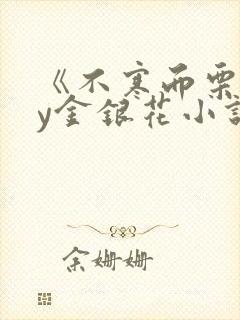 《不寒而栗
y金银花小说
余姗姗